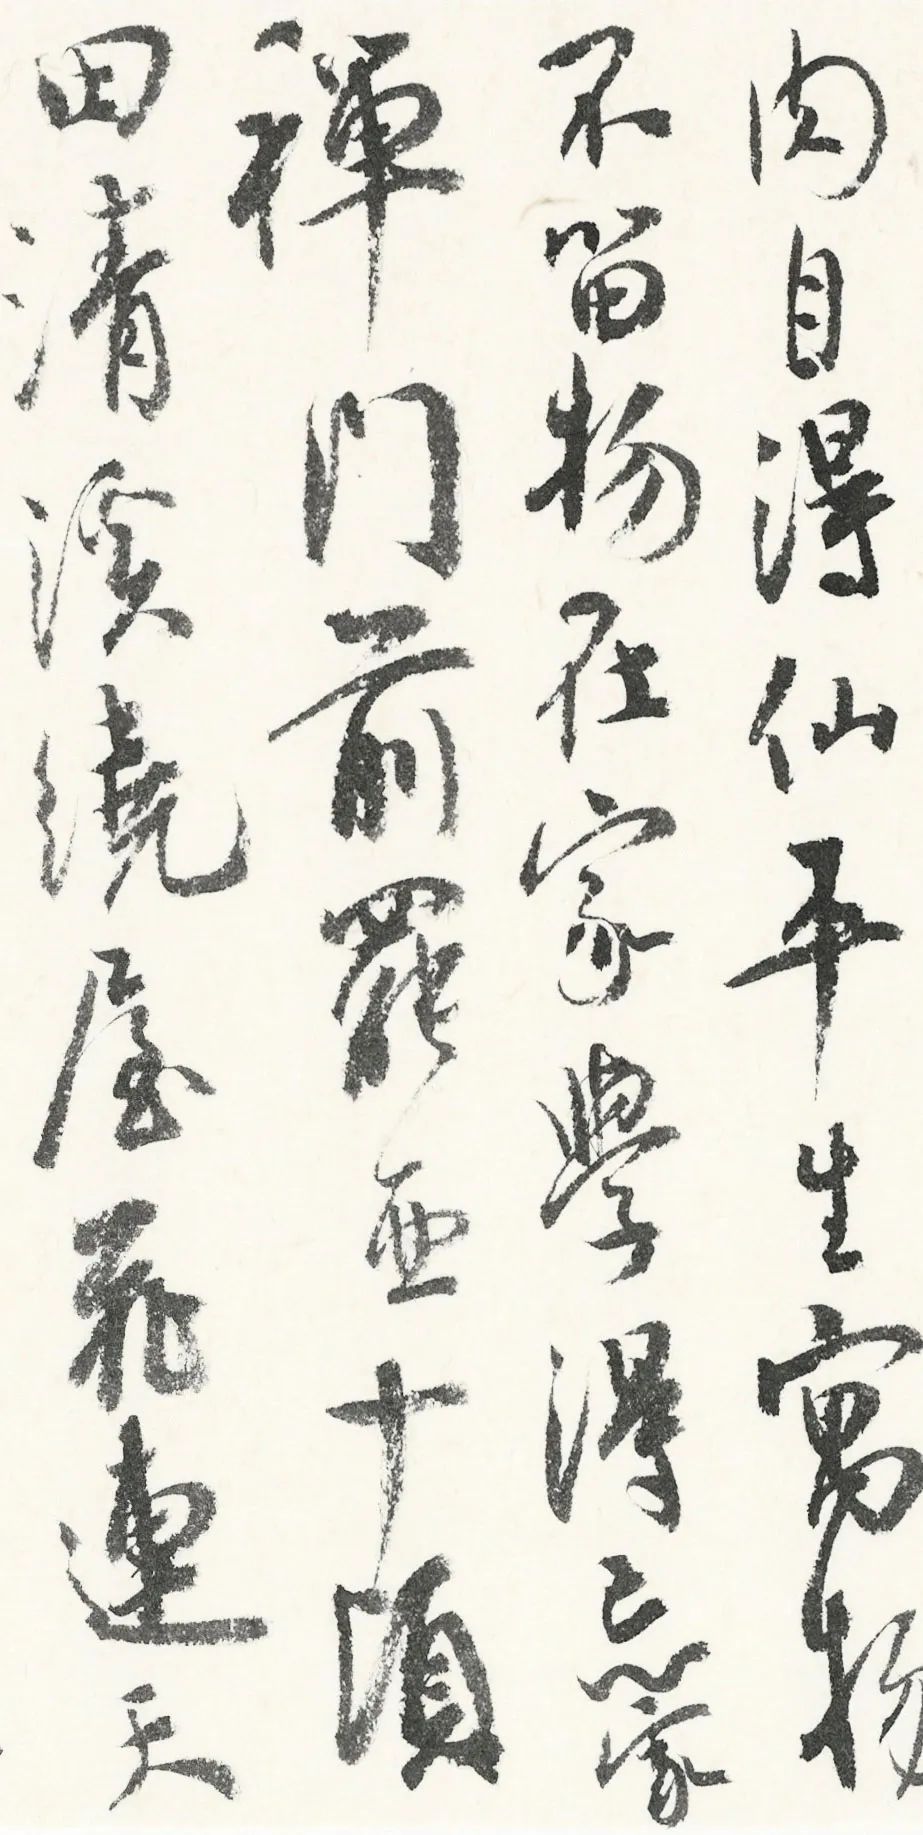 肉自得仙平生寓物
不留物在家學得忘家
禪門前罷亞十頃
田清溪繞屋花連天